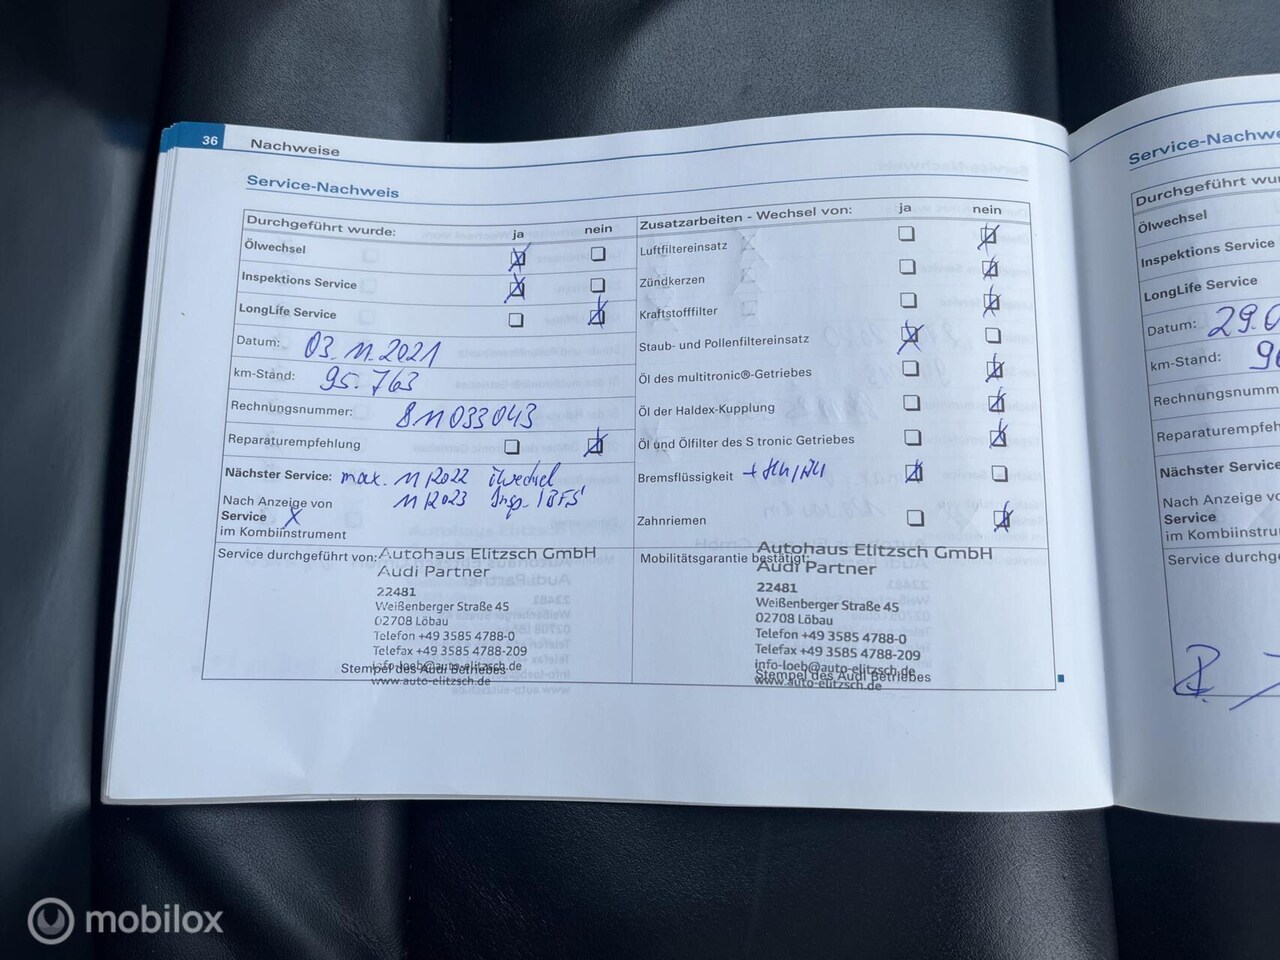 36 Nachweise
Service-Nachweis
Durchgeführt wurde: ja nein
Ölwechsel
Inspektions Service
LongLife Service
Datum: 03.11.2021
km-Stand: 95.763
Rechnungsnummer: 811033043
Reparaturempfehlung
Nächster Service: max. 11/2022 Ölwechsel
Nach Anzeige von 11/2023 Insp. /BFS
Service X
im Kombiinstrument
Service durchgeführt von: Autohaus Elitzsch GmbH
Audi Partner
22481
Weißenberger Straße 45
02708 Löbau
Telefon +49 3585 4788-0
Telefax +49 3585 4788-209
info-loeb@auto-elitzsch.de
Stempel des Audi Betriebes
www.auto-elitzsch.de
Zusatzarbeiten - Wechsel von: ja nein
Luftfiltereinsatz
Zündkerzen
Kraftstofffilter
Staub- und Pollenfiltereinsatz
Öl des multitronic®-Getriebes
Öl der Haldex-Kupplung
Öl und Ölfilter des S tronic Getriebes
Bremsflüssigkeit
Zahnriemen
Mobilitätsgarantie bestätigt: Autohaus Elitzsch GmbH
Audi Partner
22481
Weißenberger Straße 45
02708 Löbau
Telefon +49 3585 4788-0
Telefax +49 3585 4788-209
info-loeb@auto-elitzsch.de
Stempel des Audi Betriebes
www.auto-elitzsch.de
Service-Nachwe
Durchgeführt wu
Ölwechsel
Inspektions Service
LongLife Service
Datum: 29.0
km-Stand: 96
Rechnungsnumm
Reparaturempfeh
Nächster Service
Nach Anzeige vo
Service
im Kombiinstrum
Service durchge
mobilox